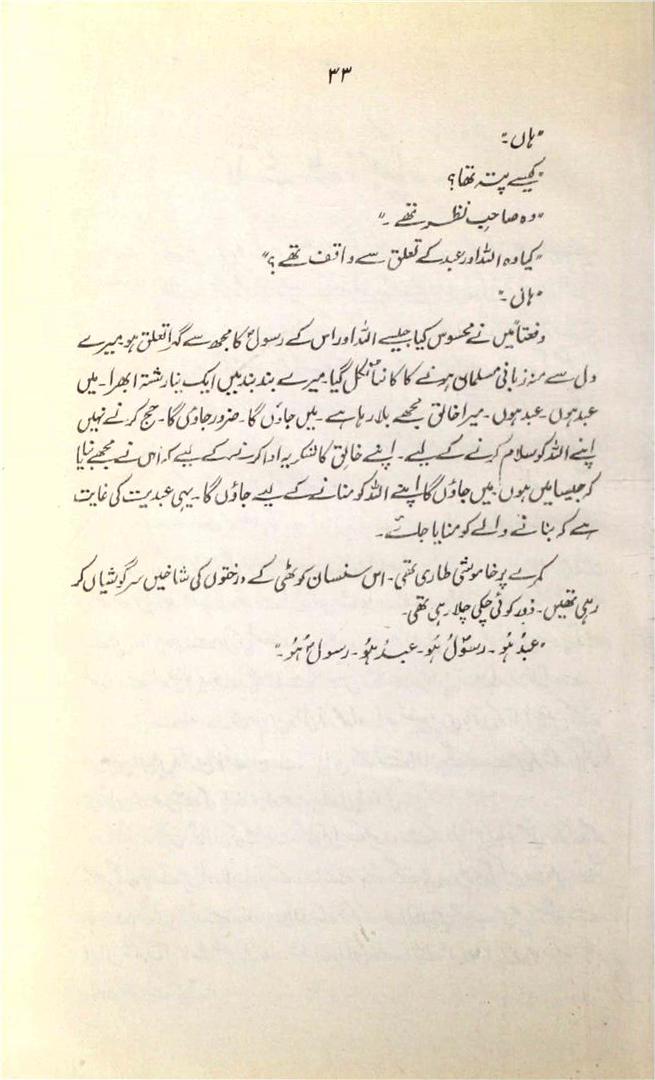 ۳۳
"ہاں۔"
"کیسے پتہ تھا؟
"وہ صاحبِ نظر تھے۔"
"کیا وہ اللہ اور عبد کے تعلق سے واقف تھے؟"
"ہاں۔"
دفعتاً میں نے محسوس کیا جیسے اللہ اور اس کے رسولؐ کا مجھ سے گہرا تعلق ہو۔ میرے
دل سے منہ زبانی مسلمان ہونے کا کانٹا نکل گیا۔ میرے بند بند میں ایک نیا رشتہ ابھرا۔ میں
عبد ہوں۔ عبد ہوں۔ میرا خالق مجھے بلا رہا ہے۔ میں جاؤں گا۔ ضرور جاؤں گا۔ حج کرنے نہیں
اپنے اللہ کو سلام کرنے کے لیے۔ اپنے خالق کا شکریہ ادا کرنے کے لیے کہ اُس نے مجھے بنایا
کہ جیسا میں ہوں۔ میں جاؤں گا اپنے اللہ کو منانے کے لیے جاؤں گا۔ یہی عبدیت کی غایت
ہے کہ بنانے والے کو منایا جائے۔
کمرے پر خاموشی طاری تھی۔ اس سنسان کوٹھی کے درختوں کی شاخیں سرگوشیاں کر
رہی تھیں۔ دُور کوئی چکی چلا رہی تھی۔
"عبدُہٗ ہُو۔ رسولُہٗ ہُو۔ عبدُہٗ ہُو۔ رسولُہٗ ہُو۔"